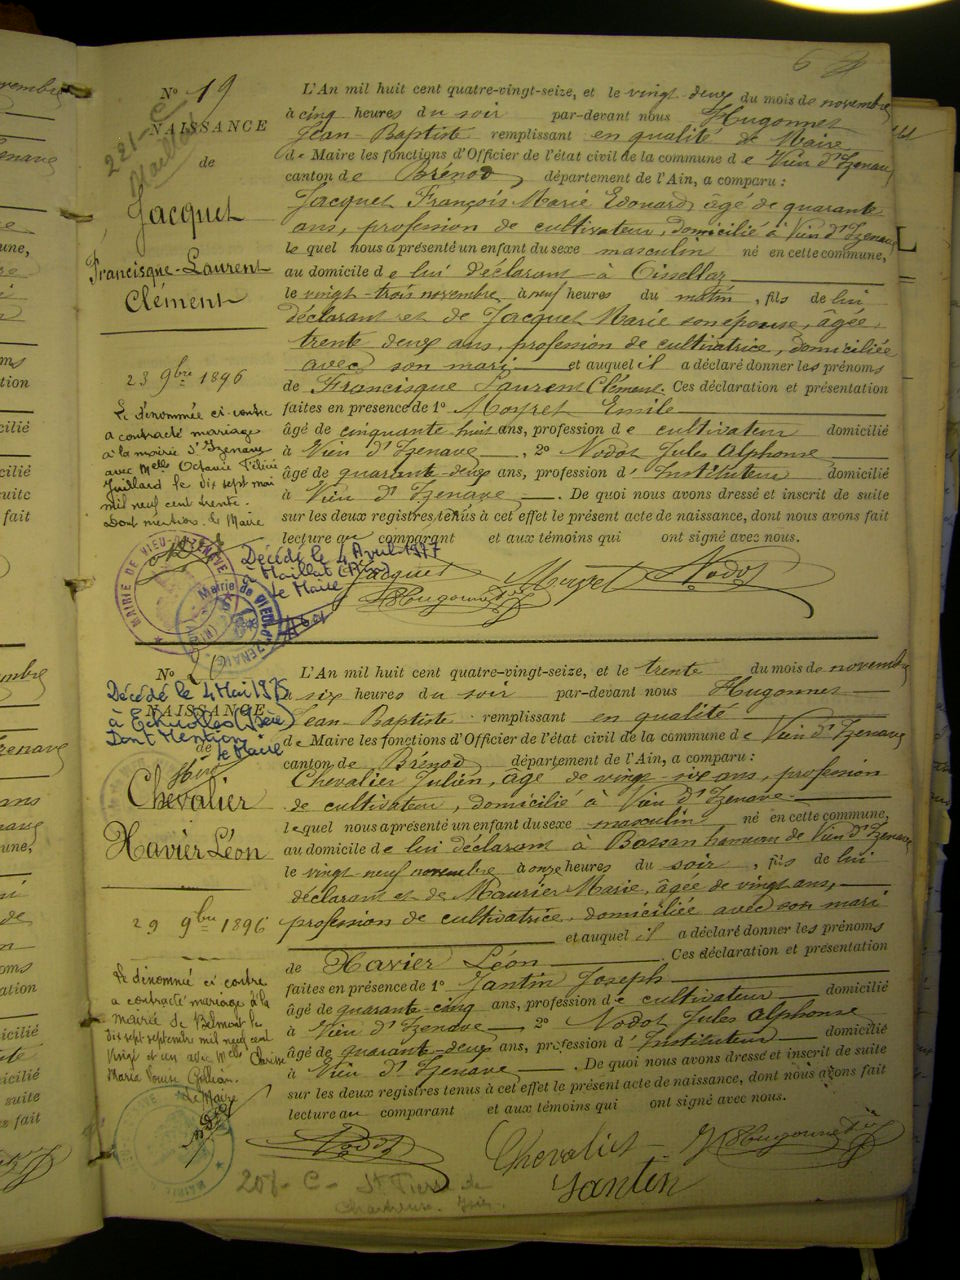 N° 19
NAISSANCE
de
Jacquet
Francisque-Laurent
Clément
23 9bre 1896
Le dénommé ci-contre
a contracté mariage
à la mairie d'Izenave
avec Melle Octavie
Juillard le dix sept mai
mil neuf cent trente.
Dont mention. Le Maire
MAIRIE DE VIEU-D'IZENAVE
Décédé le 4 Avril 1977
à Maillat (Ain)
Le Maire
221-C
Maillat
L'An mil huit cent quatre-vingt-seize, et le vingt-deux du mois de novembre
à cinq heures du soir par-devant nous Hugonnet
Jean-Baptiste remplissant en qualité de Maire
de Maire les fonctions d'Officier de l'état civil de la commune de Vieu d'Izenave
canton de Brénod, département de l'Ain, a comparu :
Jacquet François Marie Edouard, âgé de quarante
ans, profession de cultivateur, domicilié à Vieu d'Izenave
lequel nous a présenté un enfant du sexe masculin né en cette commune,
au domicile de lui déclarant à
le vingt-trois novembre, à neuf heures du matin, fils de lui
déclarant et de Jacquet Marie son épouse, âgée
trente deux ans, profession de cultivatrice, domiciliée
avec son mari et auquel il a déclaré donner les prénoms
de Francisque Laurent Clément. Ces déclaration et présentation
faites en présence de 1° Moyret Emile
âgé de cinquante huit ans, profession de cultivateur domicilié
à Vieu d'Izenave, 2° Nodot Jules Alphonse
âgé de quarante-deux ans, profession d'Instituteur domicilié
à Vieu d'Izenave. De quoi nous avons dressé et inscrit de suite
sur les deux registres tenus à cet effet le présent acte de naissance, dont nous avons fait
lecture au comparant et aux témoins qui ont signé avec nous.
Jacquet Moyret Nodot
Hugonnet
N° 20
NAISSANCE
de
Décédé le 4 Mai 1975
à Echirolles (Isère)
Dont Mention
le Maire
Chevalier
Xavier Léon
29 9bre 1896
Le dénommé ci contre
a contracté mariage à la
mairie de Belmont le
dix sept septembre mil neuf cent
vingt et un avec Melle
Maria Louise
Le Maire
L'An mil huit cent quatre-vingt-seize, et le trente du mois de novembre
à six heures du soir par-devant nous Hugonnet
Jean-Baptiste remplissant en qualité
de Maire les fonctions d'Officier de l'état civil de la commune de Vieu d'Izenave
canton de Brénod, département de l'Ain, a comparu :
Chevalier Julien, âgé de vingt-six ans, profession
de cultivateur, domicilié à Vieu d'Izenave.
lequel nous a présenté un enfant du sexe masculin né en cette commune,
au domicile de lui déclarant à Bassan hameau de Vieu d'Izenave
le vingt-neuf novembre à onze heures du soir, fils de lui
déclarant et de Maurier Marie, âgée de vingt ans,
profession de cultivatrice, domiciliée avec son mari
et auquel il a déclaré donner les prénoms
de Xavier Léon. Ces déclaration et présentation
faites en présence de 1° Jantin Joseph
âgé de quarante-cinq ans, profession de cultivateur domicilié
à Vieu d'Izenave 2° Nodot Jules Alphonse
âgé de quarante-deux ans, profession d'Instituteur domicilié
à Vieu d'Izenave. De quoi nous avons dressé et inscrit de suite
sur les deux registres tenus à cet effet le présent acte de naissance, dont nous avons fait
lecture au comparant et aux témoins qui ont signé avec nous.
Nodot Chevalier Hugonnet
Jantin
208-C- St Pierre de
Chartreuse.